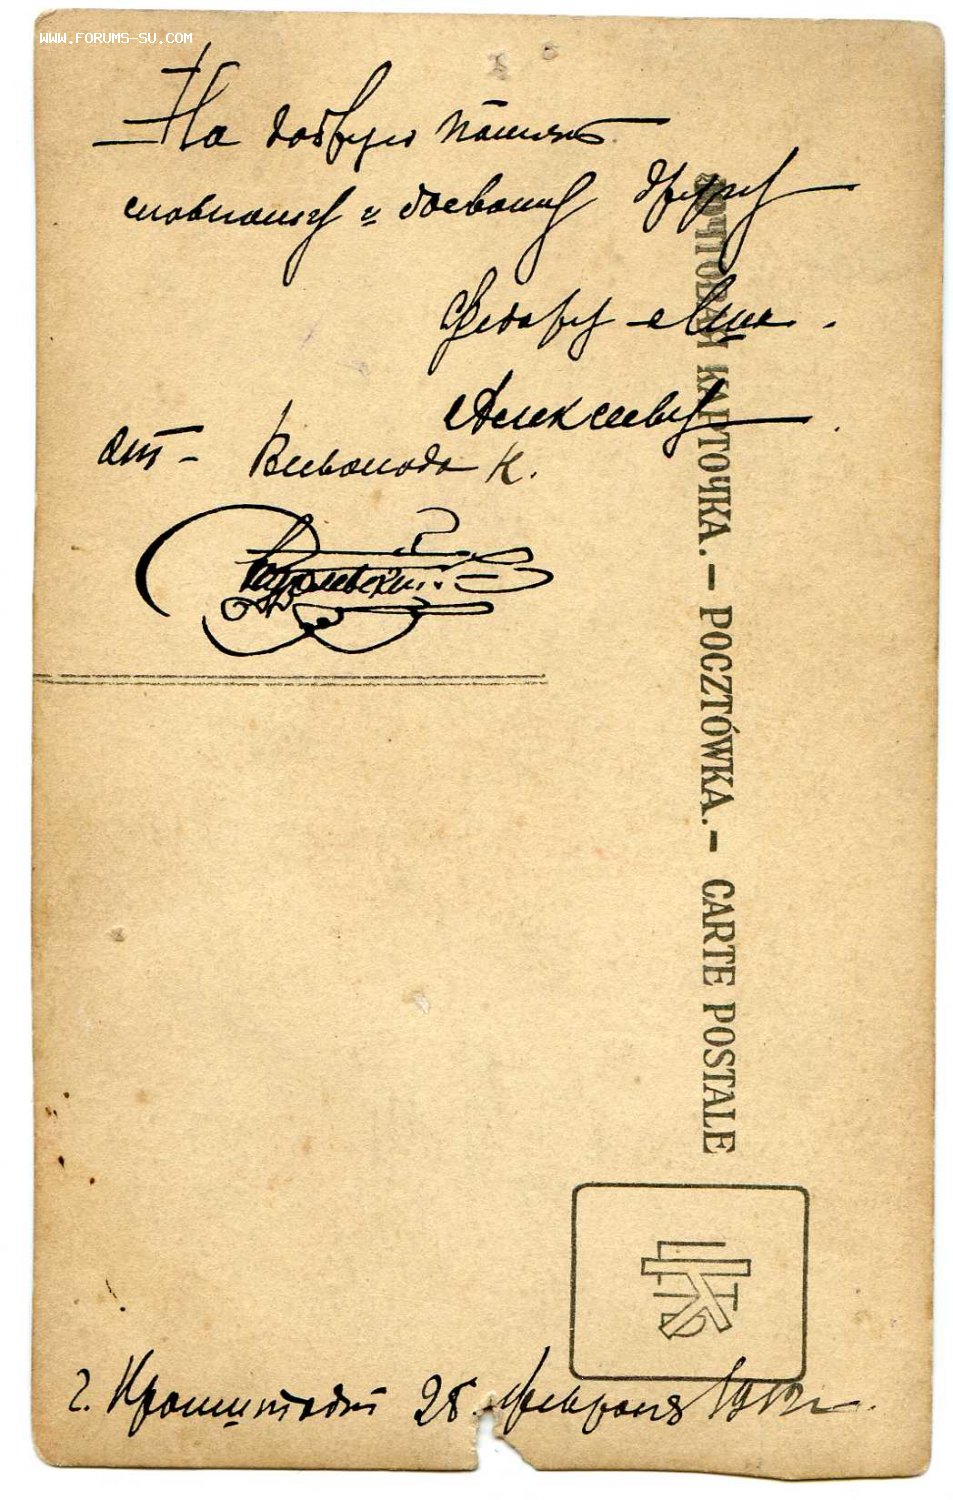 WWW.FORUMS-SU.COM
На добрую память
славному и боевому другу
Федору
Алексееву
от - К.
ПОЧТОВАЯ КАРТОЧКА. — POCZTÓWKA. — CARTE POSTALE
г. Кронштадт февраля